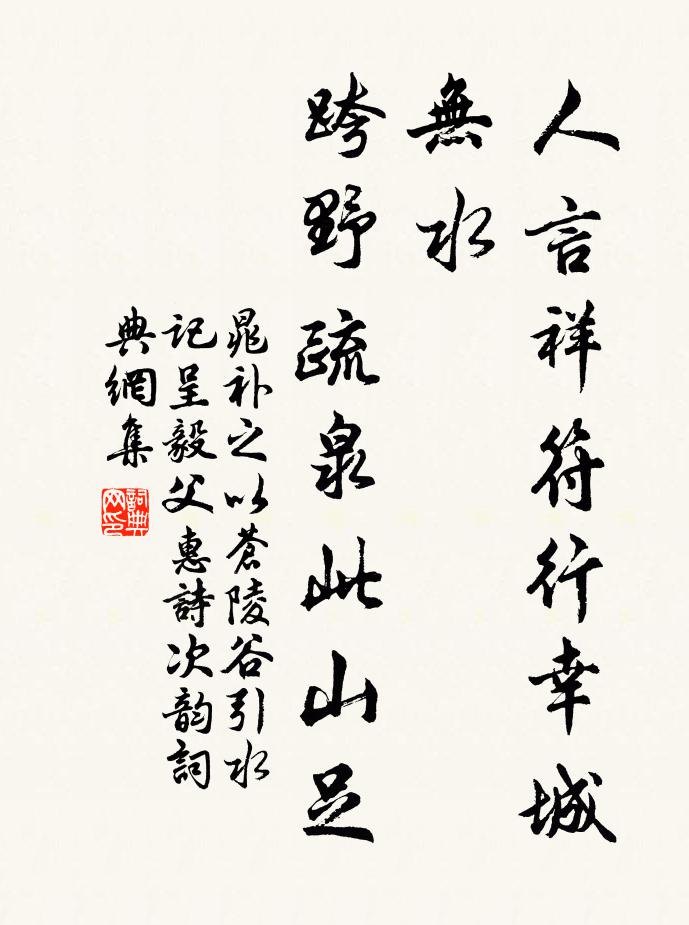 人言祥符行幸城
無水
跨野疏泉此山足
晁补之以蒼陵谷引水
記呈毅父惠詩次韵詞
典網集
詞典
网印